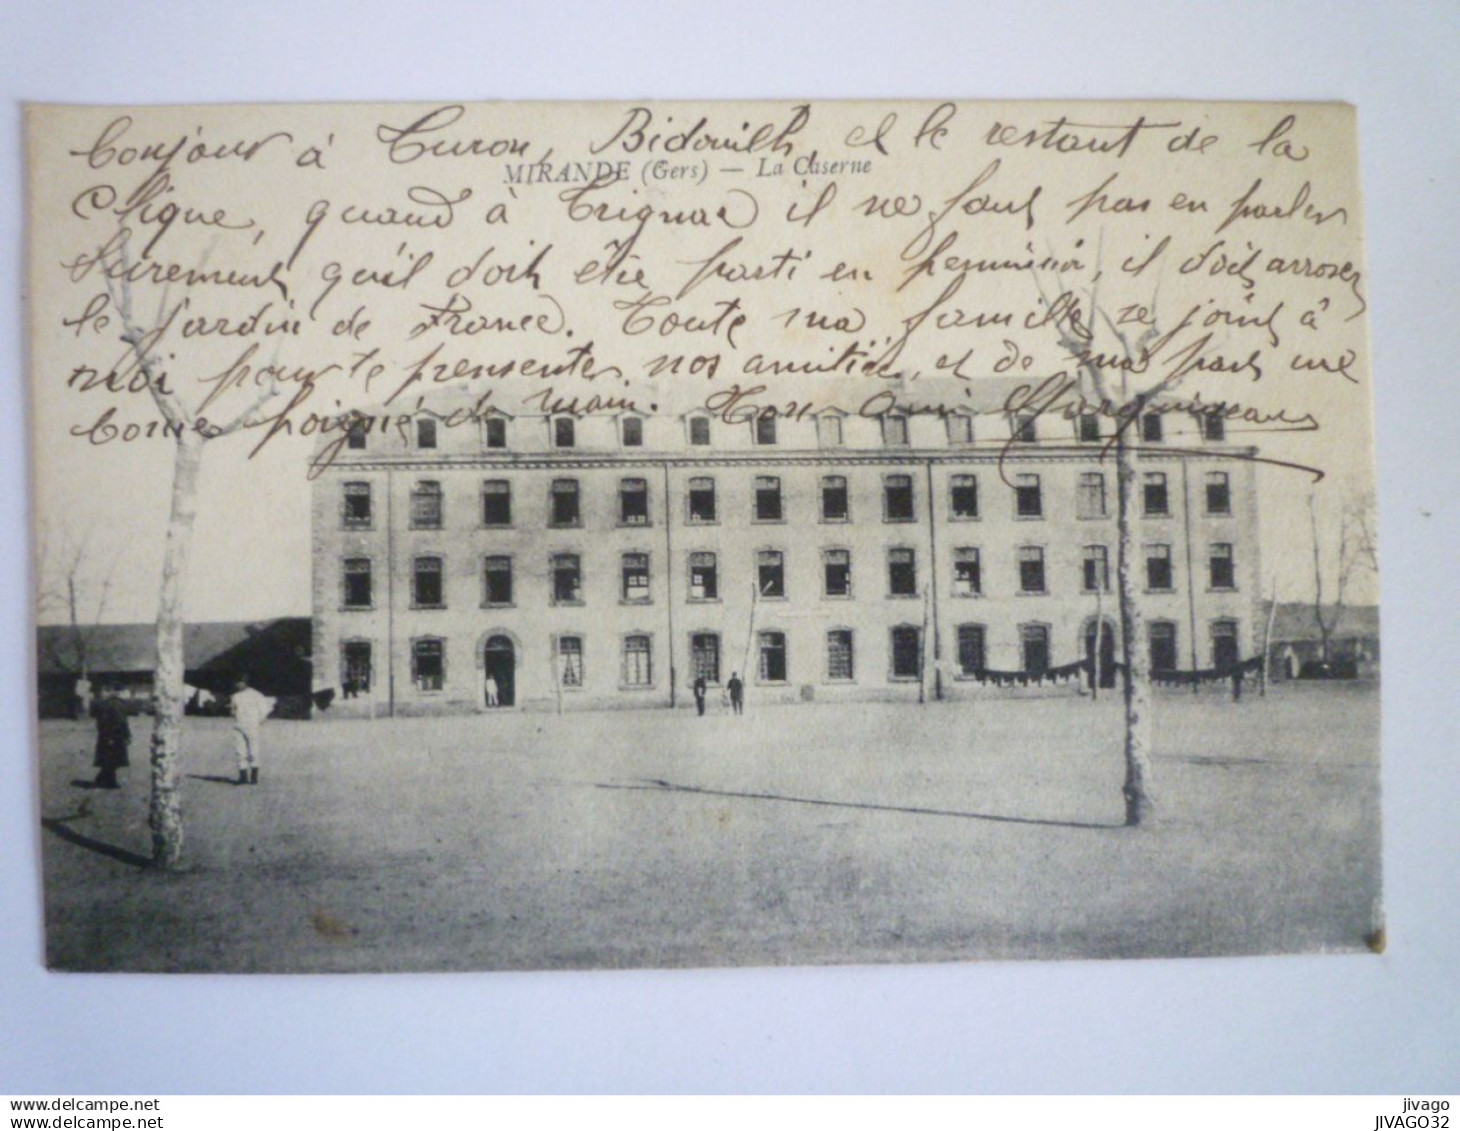 bonjour à Curon, Bidouilh, et le restant de la
MIRANDE (Gers) — La Caserne
Clique, quand à Trignac il ne faut pas en parler
Surement qu'il doit être parti en permission, il doit arroser
le jardin de France. Toute ma famille se joint à
moi pour te presenter nos amitiés, et de ma part une
bonne poigné de main. Ton Ami
jivago
JIVAGO32
www.delcampe.net
www.delcampe.net